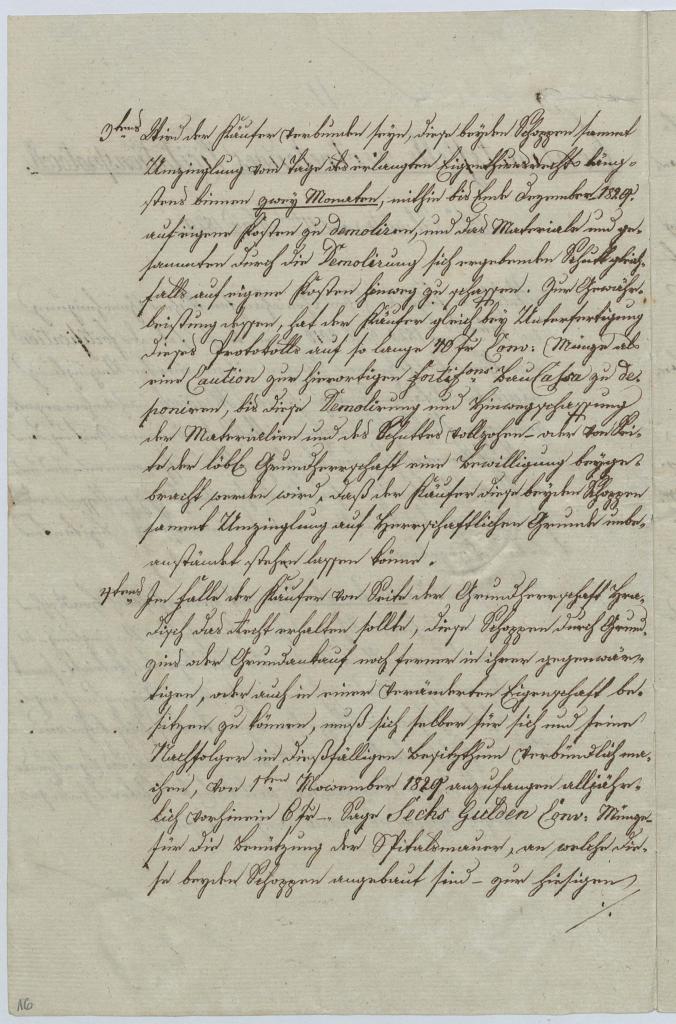 3tens Wird der Käufer verbunden seyn, diese beyden Schoppen sammt
Umzinglung vom Tage des erlangten Eigenthumsrechts läng-
stens binnen zwey Monaten, mithin bis Ende Dezember 1829.
auf eigene Kosten zu demoliren, und das Materiale und ge-
sammten durch die Demolirung sich ergebenden Schutt gleich-
falls auf eigene Kosten hinweg zu schaffen. Zur Gewähr-
leistung dessen, hat der Käufer gleich bey Unterfertigung
dieses Protokolls auf so lange 40 fr Conv: Münze als
eine Caution zur hierortigen Fortifons Bau Cassa zu de-
poniren, bis diese Demolirung und Hinwegschaffung
der Materialien und des Schuttes vollzohen - oder von Sei-
te der löbl. Grundherrschaft eine Bewilligung beyge-
bracht werden wird, daß der Käufer diese beyden Schoppen
sammt Umzinglung auf Herrschaftlichen Grunde unbe-
anständet stehen lassen könne.
4tens Im Falle der Käufer von Seite der Grundherrschaft Hra-
disch das Recht erhalten sollte, diese Schoppen durch Grund-
zins oder Grundankauf noch ferner in ihrer gegenwär-
tigen, oder auch in einer veränderten Eigenschaft be-
sitzen zu können, muß sich selber für sich und seine
Nachfolger in dießfälligen Besitzthum verbündlich ma-
chen, von 1ten November 1829 anzufangen alljähr-
lich vorhinein 6 fr - Sage Sechs Gulden Conv: Münze
für die Benützung der Spitalsmauer, an welche die-
se beyden Schoppen angebaut sind - zur hiesigen
./.
16